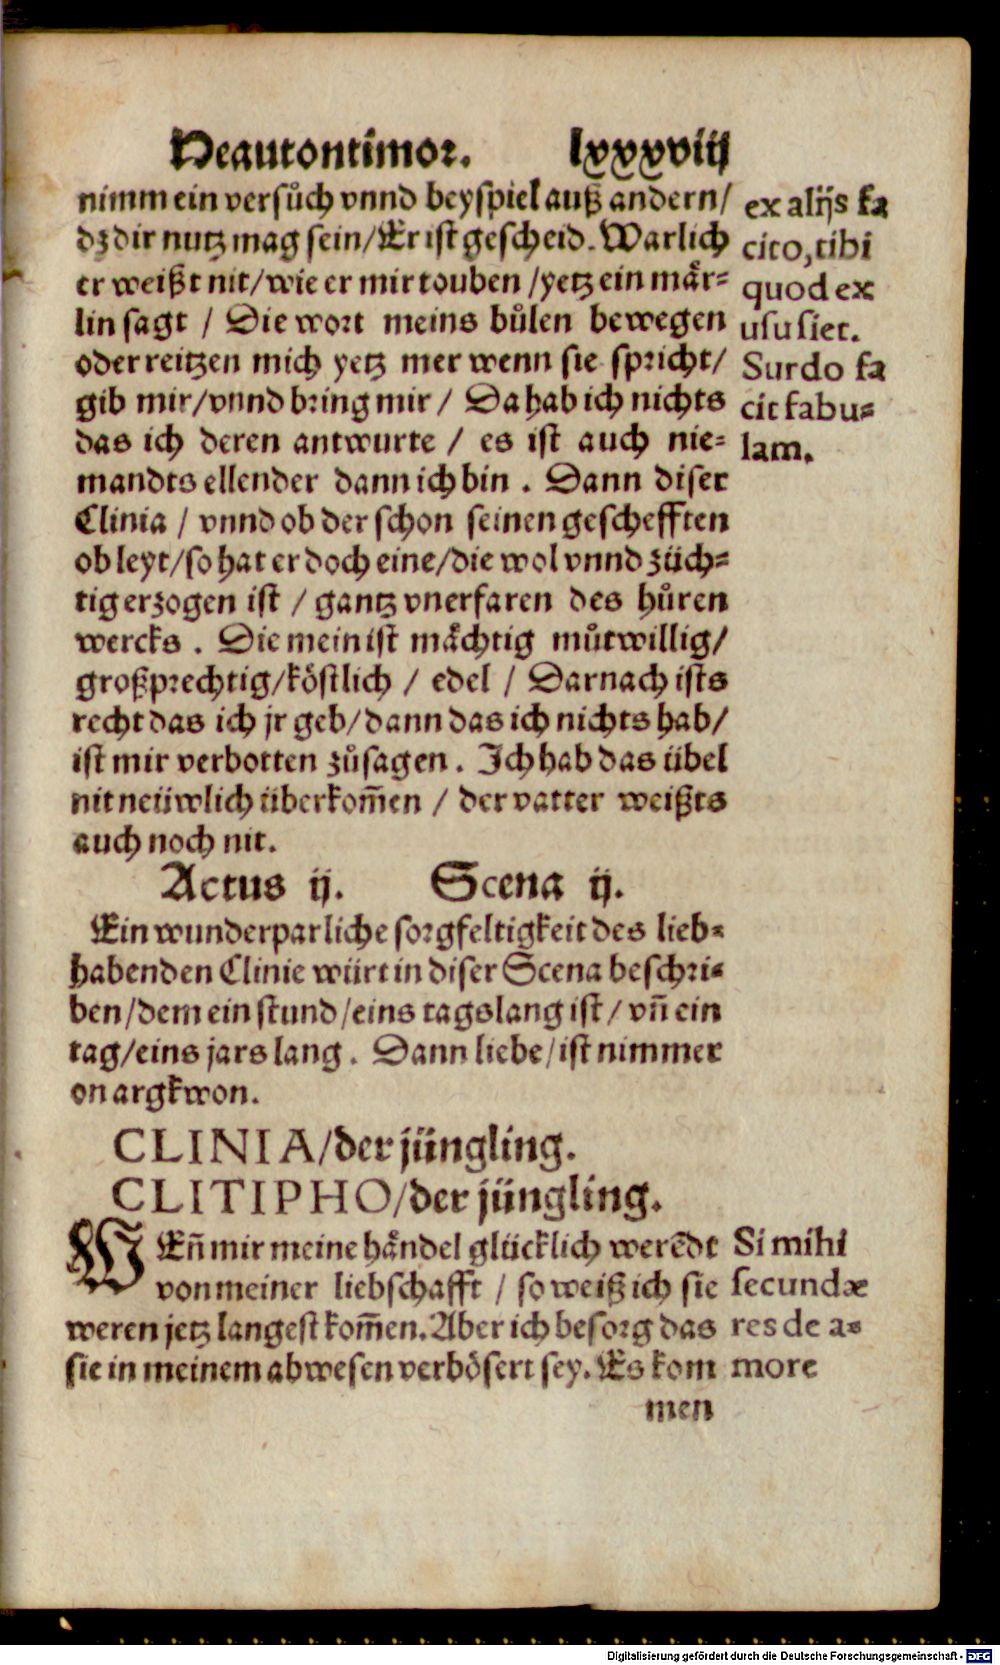 Heautontimor. lxxxviij
nimm ein versuͦch vnnd beyspiel auß andern/
dz dir nutz mag sein/Er ist gescheid. Warlich
er weißt nit/wie er mir touben/yetz ein maͤr⸗
lin sagt / Die wort meins buͦlen bewegen
oder reitzen mich yetz mer wenn sie spricht/
gib mir/vnnd bring mir / Da hab ich nichts
das ich deren antwurte / es ist auch nie⸗
mandts ellender dann ich bin . Dann diser
Clinia / vnnd ob der schon seinen geschefften
ob leyt/so hat er doch eine/die wol vnnd züch⸗
tig erzogen ist / gantz vnerfaren des huͦren
wercks . Die mein ist maͤchtig muͦtwillig/
großprechtig/köstlich / edel / Darnach ists
recht das ich jr geb/dann das ich nichts hab/
ist mir verbotten zuͦsagen . Ich hab das übel
nit neüwlich überkom̃en / der vatter weißts
auch noch nit.
ex alijs fa
cito, tibi
quod ex
usu siet.
Surdo fa
cit fabu⸗
lam.
Actus ij. Scena ij.
Ein wunderparliche sorgfeltigkeit des lieb⸗
habenden Clinie würt in diser Scena beschri⸗
ben/dem ein stund/eins tags lang ist/ vñ ein
tag/eins jars lang . Dann liebe/ist nimmer
on argkwon.
CLINIA/der jüngling.
CLITIPHO/der jüngling.
WEñ mir meine haͤndel glücklich werẽdt
von meiner liebschafft / so weiß ich sie
weren jetz langest kom̃en. Aber ich besorg das
sie in meinem abwesen verbösert sey. Es kom
men
Si mihi
secundæ
res de a⸗
more
Digitalisierung gefördert durch die Deutsche Forschungsgemeinschaft - DFG